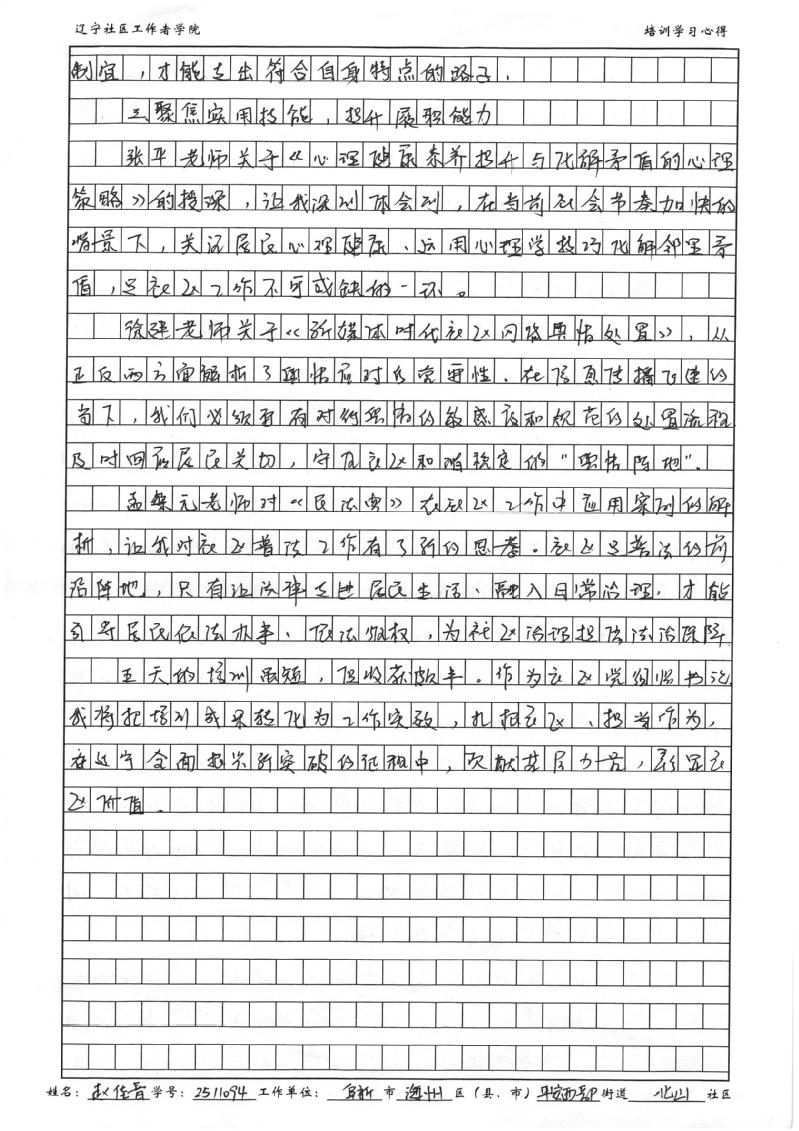 辽宁社区工作者学院 培训学习心得
制宜，才能走出符合自身特点的路子。
三聚焦实用技能，提升履职能力
张平老师关于《心理健康素养提升与化解矛盾的心理
策略》的授课，让我深刻体会到，在当前社会节奏加快的
背景下，关注居民心理健康、运用心理学技巧化解邻里矛
盾，是社区工作不可或缺的一环。
徐强老师关于《新媒体时代社区网络舆情处置》，从
正反两方面解析了舆情应对的重要性。在信息传播飞速的
当下，我们必须要有对待舆情的敏感度和规范的处置流程
及时回应居民关切，守护社区和谐稳定的“舆情阵地”。
孟繁元老师对《民法典》在社区工作中应用案例的解
析，让我对社区普法工作有了新的思考。社区是普法的前
沿阵地，只有让法律走进居民生活、融入日常治理，才能
引导居民依法办事、依法维权，为社区治理提供法治保障
五天的培训虽短，但收获颇丰。作为社区党组织书记
我将把培训成果转化为工作实效，扎根社区、担当作为，
在辽宁全面振兴新突破的征程中，贡献基层力量，彰显社
区价值。
姓名：赵佳音 学号：2511094 工作单位：阜新 市 海州 区（县、市）平安西部 街道 北山 社区